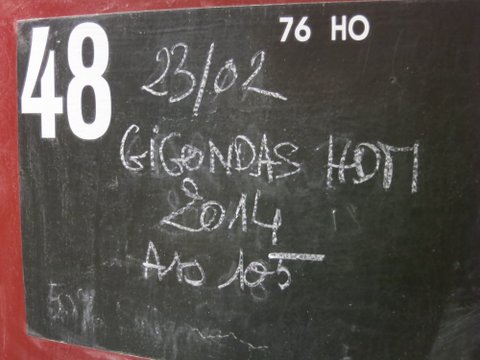 48
76 HO
23/02
GIGONDAS HDM
2014